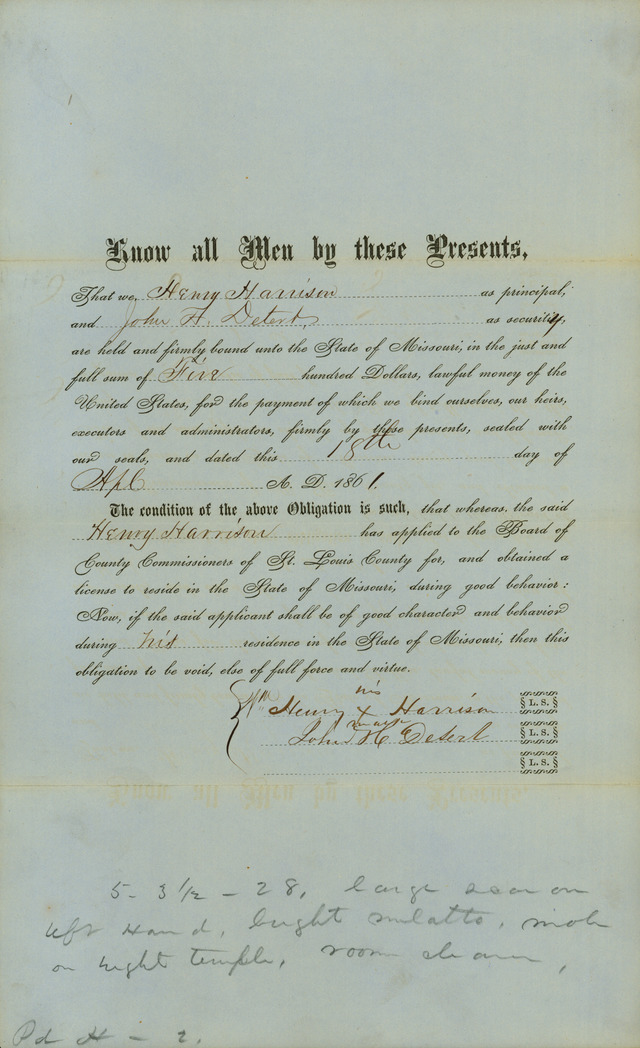 Know all Men by these Presents,
That we, Henry Harrison as principal,
and John H. Detert, as security,
are held and firmly bound unto the State of Missouri, in the just and
full sum of Five hundred Dollars, lawful money of the
United States, for the payment of which we bind ourselves, our heirs,
executors and administrators, firmly by these presents, sealed with
our seals, and dated this 18th day of
Apl A. D. 1861.
The condition of the above Obligation is such, that whereas, the said
Henry Harrison has applied to the Board of
County Commissioners of St. Louis County for, and obtained a
license to reside in the State of Missouri, during good behavior:
Now, if the said applicant shall be of good character and behavior
during his residence in the State of Missouri, then this
obligation to be void, else of full force and virtue.
his
Henry X Harrison § L. S. §
mark
John H Detert § L. S. §
§ L. S. §
5-3 1/2 - 28, large scar on
left Hand, bright mulatto, mole
on right temple,
Pd H - 2.